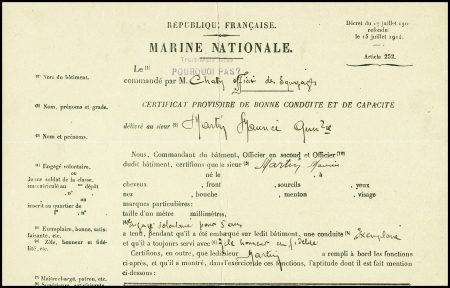 RÉPUBLIQUE FRANÇAISE.
Décret du 15 juillet 191
refondu
le 15 juillet 1914.
Article 252.
MARINE NATIONALE.
Le (1)
POURQUOI PAS?
(1) Nom du bâtiment.
commandé par M. Officier des Equipages
(2) Nom, prénoms et grade.
CERTIFICAT PROVISOIRE DE BONNE CONDUITE ET DE CAPACITÉ
délivré au sieur (3) Martin Maurice
(3) Nom et prénoms.
Nous, Commandant du bâtiment, Officier en second et Officier
dudit bâtiment, certifions que le sieur (3) Martin Maurice
(4) Engagé volontaire,
ou
Jeune soldat de la classe,
immatriculé au dépôt
n°
ou
inscrit au quartier de
n°
né le , à
cheveux , front , sourcils , yeux
nez , bouche , menton , visage
marques particulières :
taille d'un mètre millimètres,
(4) Engagé volontaire pour 5 ans
(5) Exemplaire, bonne, satisfaisante, etc.
a tenu, pendant qu'il a été embarqué sur ledit bâtiment, une conduite (5) Exemplaire
(6) Zèle, honneur et fidélité, etc.
et qu'il a toujours servi avec (6) Zèle honneur et fidélité
Certifions, en outre, que ledit sieur Martin a rempli à bord les fonctions
ci-après, et qu'il a montré, dans l'exercice de ces fonctions, l'aptitude dont il est fait mention
ci-dessous :